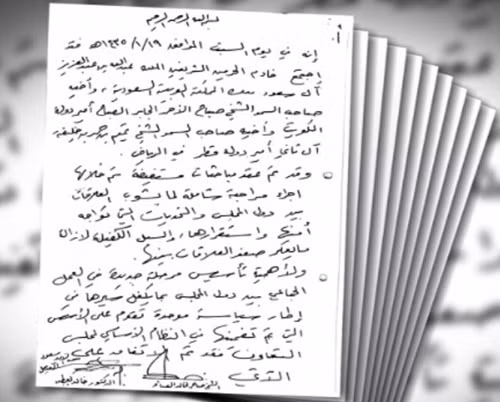 بسم الله الرحمن الرحيم
إنه في يوم السبت الموافق ١٤٣٥/١/١٩هـ فقد
اجتمع خادم الحرمين الشريفين الملك عبدالله بن عبدالعزيز
آل سعود ملك المملكة العربية السعودية، وأخيه
صاحب السمو الشيخ صباح الأحمد الجابر الصباح أمير دولة
الكويت وأخيه صاحب السمو الشيخ تميم بن حمد بن خليفه
آل ثاني أمير دولة قطر في الرياض.
وقد تم عقد مباحثات مستفيضة تم خلالها
اجراء مراجعة شاملة لما يشوب العلاقات
بين دول المجلس والتحديات التي تواجه
أمنها واستقرارها، والسبل الكفيلة لازالة
ما يعكر صفو العلاقات بينها.
ولأهمية تأسيس مرحلة جديدة في العمل
الجماعي بين دول المجلس بما يكفل سيرها في
إطار سياسة موحدة تقوم على الأسس
التي تم تضمينها في النظام الأساسي لمجلس
التعاون فقد تم الاتفاق على
الآتي